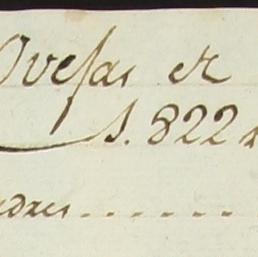 Ovejas er
1.822
adres . . . . . . .